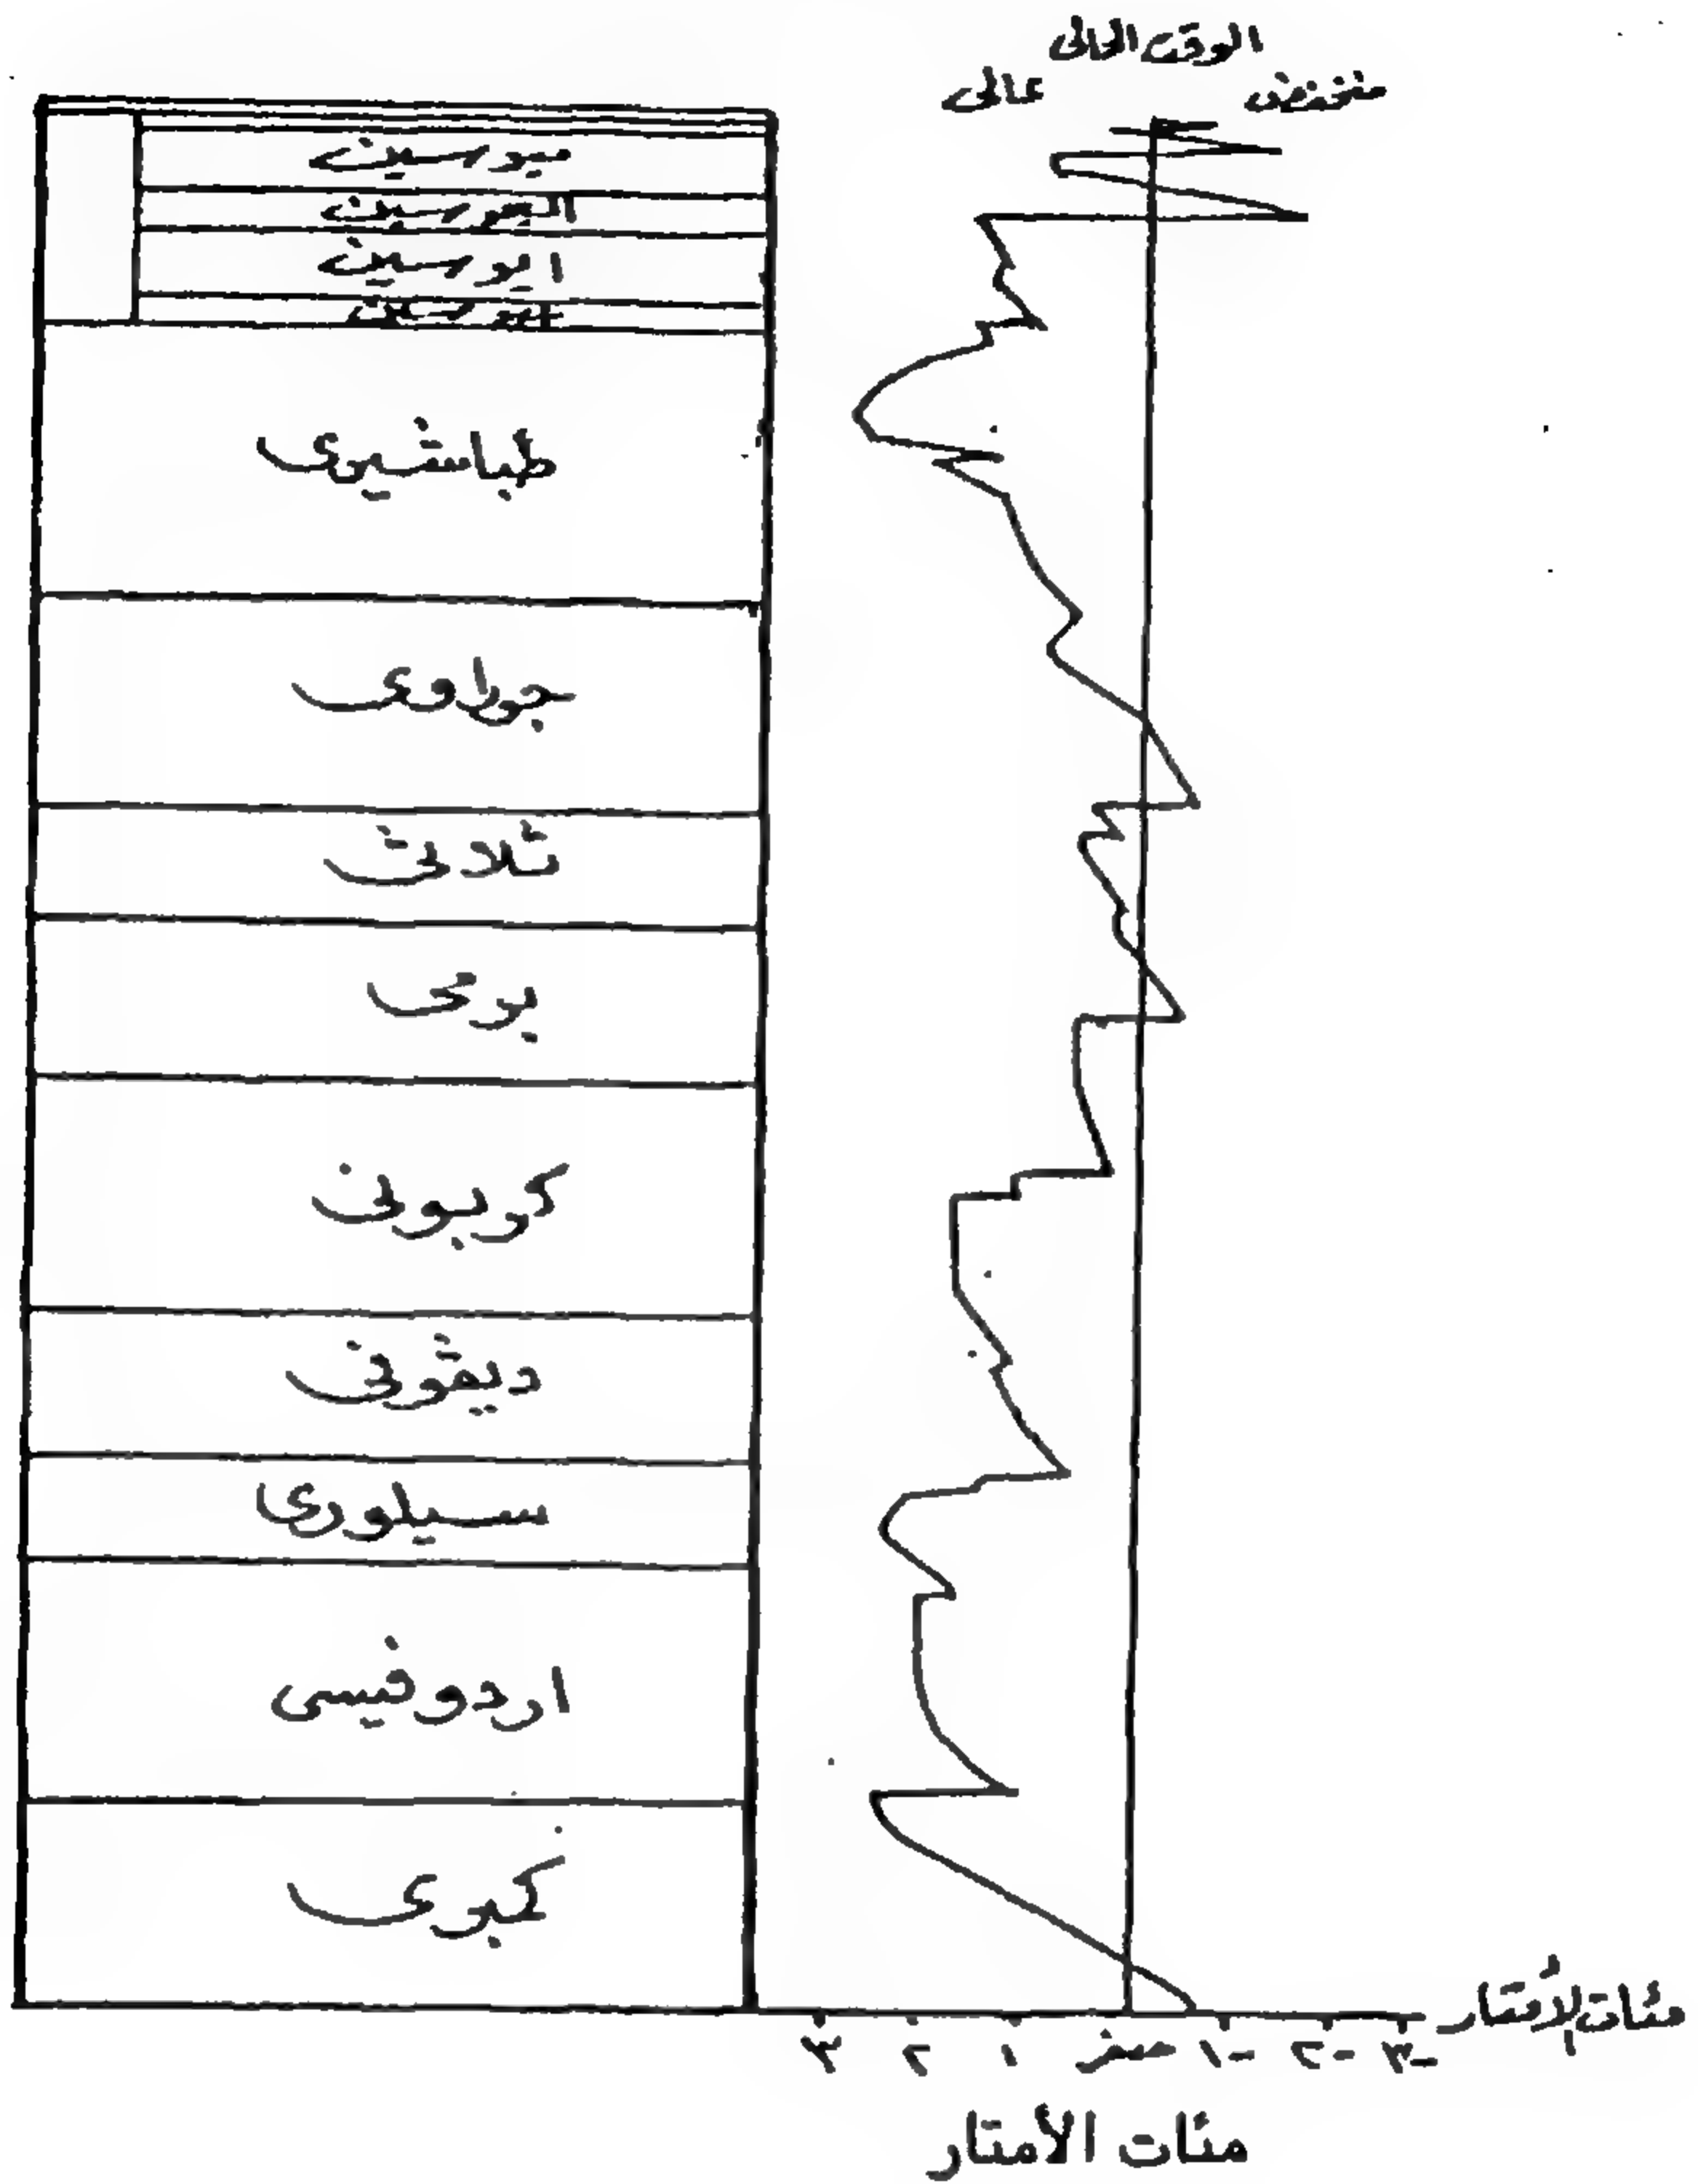 الوقت الحالى
منخفض عالى
ميوسين
اليجوسين
ايوسين
طباشيرى
جوراوى
ثلاثى
برمى
كربونى
ديفونى
سيلورى
اردوفيسى
كمبرى
مئات الأمتار
٣ ٢ ١ صفر -١ -٢ -٣
مئات الأمتار